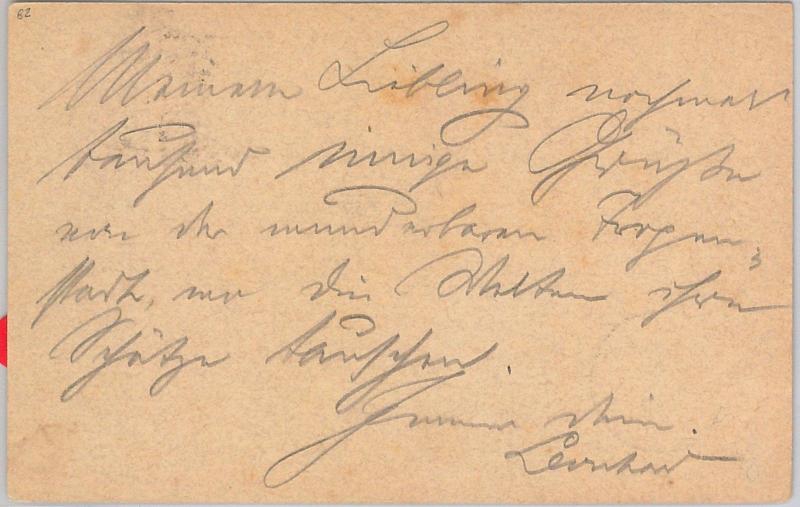 82
Meinem Liebling nochmals
tausend innige Grüße
von der wunderbaren Tropen-
stadt, wo die Welten ihre
Schätze tauschen.
Immer dein.
Leonhard